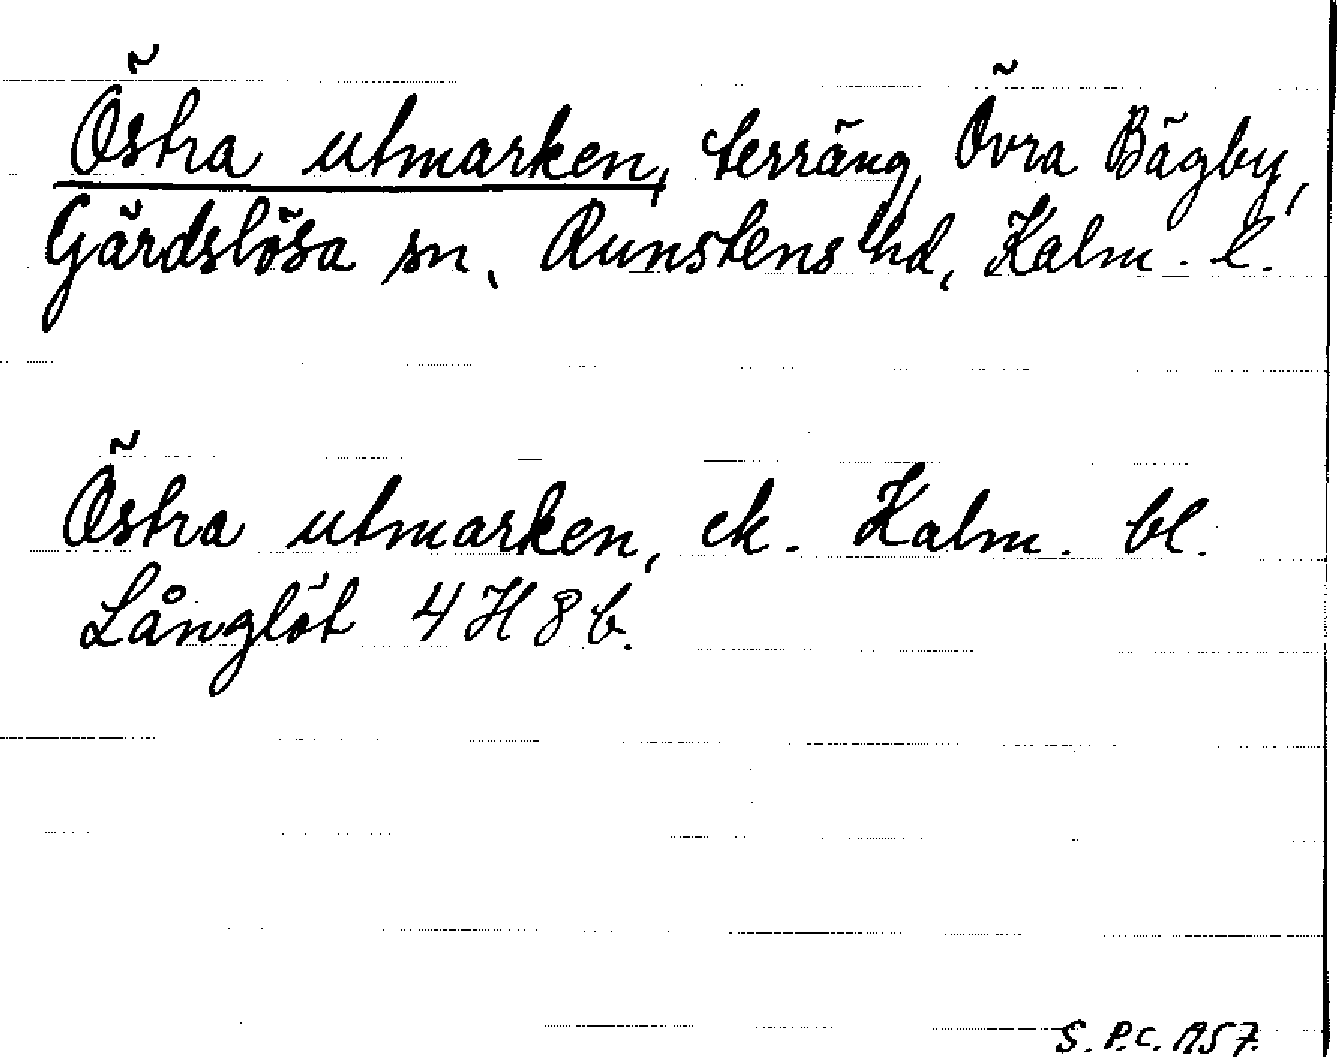 Östra utmarken, terräng, Övra Bägby,
Gärdslösa sn, Runstens hd, Kalm. l.
Östra utmarken, ek. Kalm. bl.
Långlöt 4 H 8 b.
S. P.C. 1957.